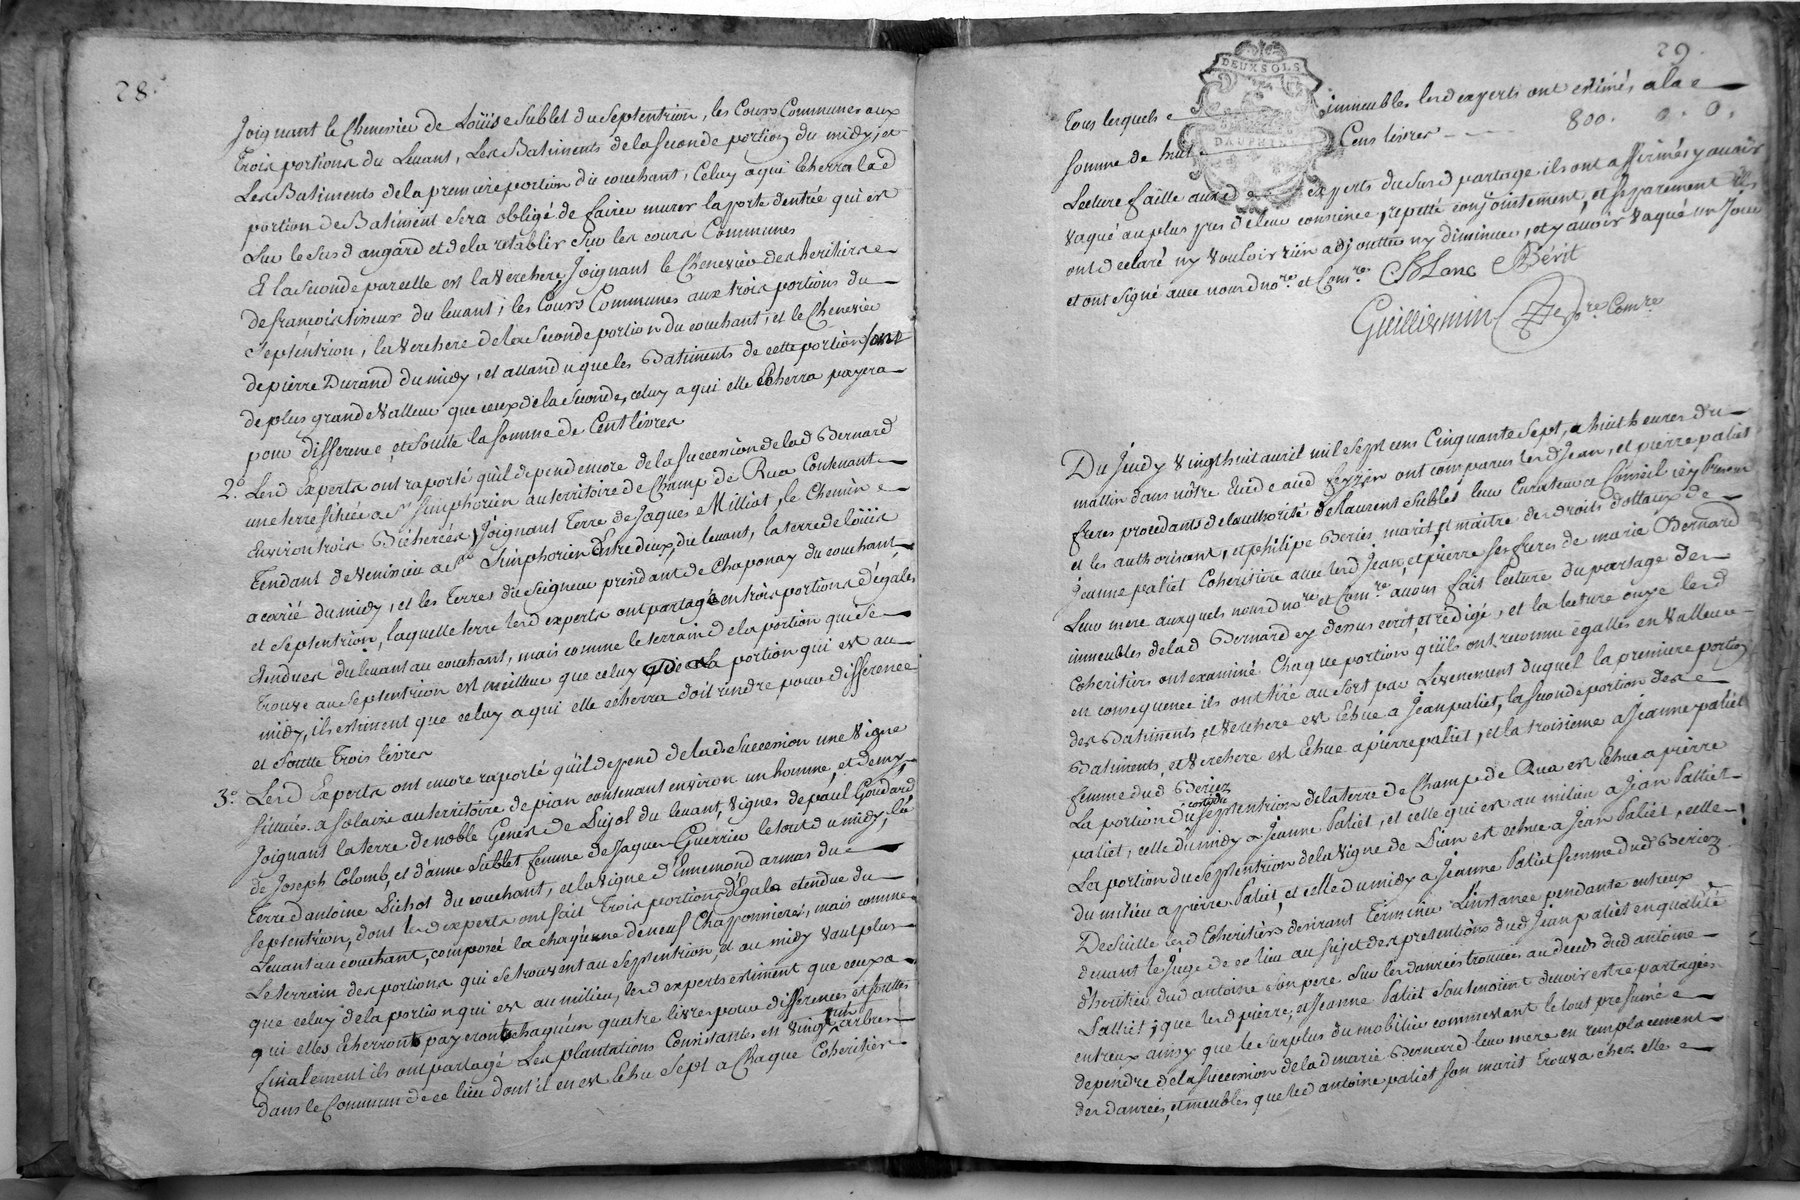 28.
Joignant le Chenevier de Loüise Sublet du Septentrion, les Cours Communes aux
trois portions du Levant, Les Batiments de la seconde portion du midy, et
Les Batiments de la premiere portion du couchant, Celuy a qui Echerra lad
portion de Batiment sera obligé de faire murer la porte dentrée qui est
sur le susd angard et de la retablir sur les cours Communes
Et la seconde parcelle est la Verchere, Joignant le Chenevier des heritiers
de francois tineur du levant, les Cours Communes aux trois portions du
Septentrion, la Verchere de la seconde portion du couchant, et le Chenevier
de pierre Durand du midy, et attandu que les Batiments de cette portion sont
de plus grande Valleur que ceux de la seconde, celuy a qui elle Echerra payera
pour difference, et soulte la somme de Cent livres
2.° Lesd Experts ont raporté quil depend encore de la succession de lad Bernard
une terre située a St simphorien au territoire de Champ de Rua Contenant
Environ trois Bicherées, Joignant Terre de Jaques Milliat, le Chemin
Tendant de Venissieu a St Simphorien Entre deux, du levant, la terre de loüis
acarié du midy, et les Terres du Seigneur president de Chaponay du couchant
et septentrion, laquelle terre lesd experts ont partagée en trois portions d'égales
Etendues du levant au couchant, mais comme le terrain de la portion qui se
trouve au septentrion est meilleur que celuy de la portion qui est au
midy, ils estiment que celuy a qui elle echerra doit rendre pour difference
et soulte Trois livres
3.° Lesd Experts ont encore raporté quil depend de lad succession une Vigne
situées a solaize au territoire de pian contenant environ un homme, et demy
Joignant la terre de noble Genis de Pujol du levant, Vignes de paul Goudard
de Joseph Colomb, et d'anne Sublet femme de Jaques Guerrier le tout du midy, la
Terre d'antoine Pichot du couchant, et la vigne d'Ennemond armas du
septentrion, dont lesd experts ont fait trois portions d'Egale etendue du
Levant au couchant, composée la chaqu'une de neuf Chapponnieres, mais comme
Le terrein des portions qui se trouvent au septentrion, et au midy vaut plus
que celuy de la portion qui est au milieu, lesd experts estiment que ceux a
qui elles Echerront payeront chaqu'un quatre livres pour differences et soultes
finalement ils ont partagé Les plantations Consistantes en vingt un arbres
dans le Commun de ce lieu dont il en est Echu Sept a Chaque Coheritier
29.
DEUX SOLS
DAUPHINÉ
Tous lesquels immeubles lesd experts ont estimés a la
somme de huit Cens livres 800. 0. 0.
Lecture faitte auxd experts du susd partage ils ont affirmés y avoir
vaqué au plus pres de leur consience, repetté conjointement, et separement ils
ont declaré ny vouloir rien adjoutter ny diminuer, et y avoir Vaqué un Jour
et ont signé avec nousd nore et Comre. Blanc Bérit
Guilliermin nore Comre
Du Jeudy Vingt huit avril mil sept cens Cinquante Sept, a huit heures du
mattin dans nôtre Etude aud feyzin ont comparus lesd Jean, et pierre paliet
freres procedants de l'authorité de laurent Sublet leur Curateur a Conseil icy present
et les authorisant, et philipe Beriés marit et maitre des droits dottaux de
Jeanne paliet Coheritiere avec lesd Jean, et pierre ses freres de marie Bernard
Leur mere auxquels nousd nore et Comre avons fait lecture du partage des
immeubles de lad Bernard cy dessus ecrit, et redigé, et la lecture ouye lesd
Coheritiers ont examiné Chaque portion qu'ils ont reconnu égalles en Valleur
en consequence ils ont tiré au sort par L'evenement duquel la premiere portion
des Batiments, et Verchere est Echue a Jean paliet, la seconde portion des
Batiments, et Verchere est Echue a pierre paliet, et la troisieme a Jeanne paliet
femme dud Beriez
La portion du septentrion de la terre de Champ de Rua est Echue a pierre
paliet, celle du midy a Jeanne Paliet, et celle qui est au milieu a Jean Palliet
La portion du septentrion de la Vigne de Pian est echue a Jean Paliet, celle
du milieu a pierre Paliet, et celle du midy a Jeanne Paliet femme dud Beriez
De suitte lesd Coheritiers desirant Terminer L'instance pendante entreux
devant le Juge de ce lieu au sujet des pretentions dud Jean paliet en qualité
d'heritier dud antoine son pere sur les danrées trouvées au deceds dud antoine
Palliet, que lesd pierre, et Jeanne Paliet soutenoient devoir estre partagées
entreux ainsy que le surplus du mobilier commevant le tout presumé
dependre de la succession de lad marie Bernard leur mere en remplacement
des danrées, et meubles que led antoine paliet son marit trouva chez elle